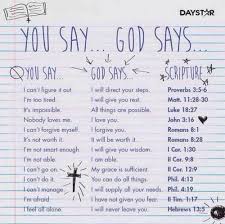 DAYSTAR
YOU SAY... GOD SAYS...
YOU SAY... GOD SAYS... SCRIPTURE
I can't figure it out I will direct your steps. Proverbs 3:5-6
I'm too tired. I will give you rest. Matt. 11:28-30
It's impossible. All things are possible. Luke 18:27
Nobody loves me. I love you. John 3:16
I can't forgive myself. I forgive you. Romans 8:1
It's not worth it. It will be worth it. Romans 8:28
I'm not smart enough. I will give you wisdom. I Cor. 1:30
I'm not able. I am able. II Cor. 9:8
I can't go on. My grace is sufficient. II Cor. 12:9
I can't do it. You can do all things. Phil. 4:13
I can't manage I will supply all your needs. Phil. 4:19
I'm afraid. I have not given you fear. II Tim. 1:7
I feel all alone. I will never leave you. Hebrews 13:5